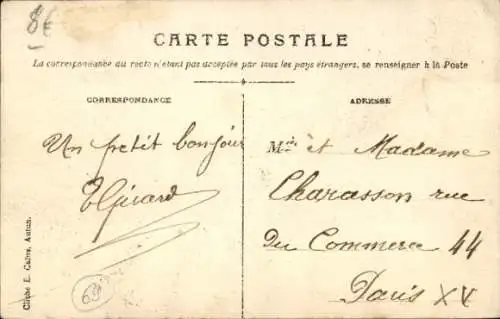 8€
CARTE POSTALE
La correspondance au recto n'étant pas acceptée par tous les pays étrangers, se renseigner à la Poste
CORRESPONDANCE
Un petit bonjour
EGirard
Cliché L. Calire, Autun.
69
ADRESSE
Mr et Madame
Charasson rue
Du Commerce 44
Paris XV